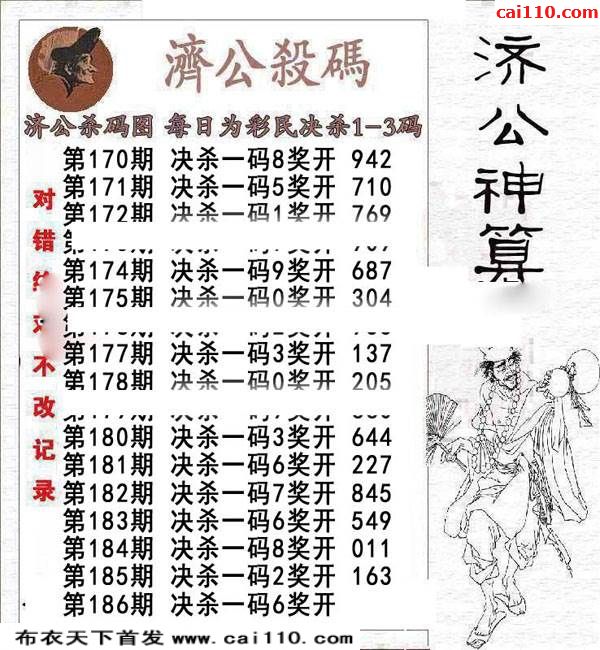 cai110.com
濟公殺碼
济公神算
济公杀码图 每日为彩民决杀1-3码
第170期 决杀一码8奖开 942
第171期 决杀一码5奖开 710
第172期 决杀一码1奖开 769
第174期 决杀一码9奖开 687
第175期 决杀一码0奖开 304
第177期 决杀一码3奖开 137
第178期 决杀一码0奖开 205
第180期 决杀一码3奖开 644
第181期 决杀一码6奖开 227
第182期 决杀一码7奖开 845
第183期 决杀一码6奖开 549
第184期 决杀一码8奖开 011
第185期 决杀一码2奖开 163
第186期 决杀一码6奖开
对错
不改记录
布衣天下首发 www.cai110.com